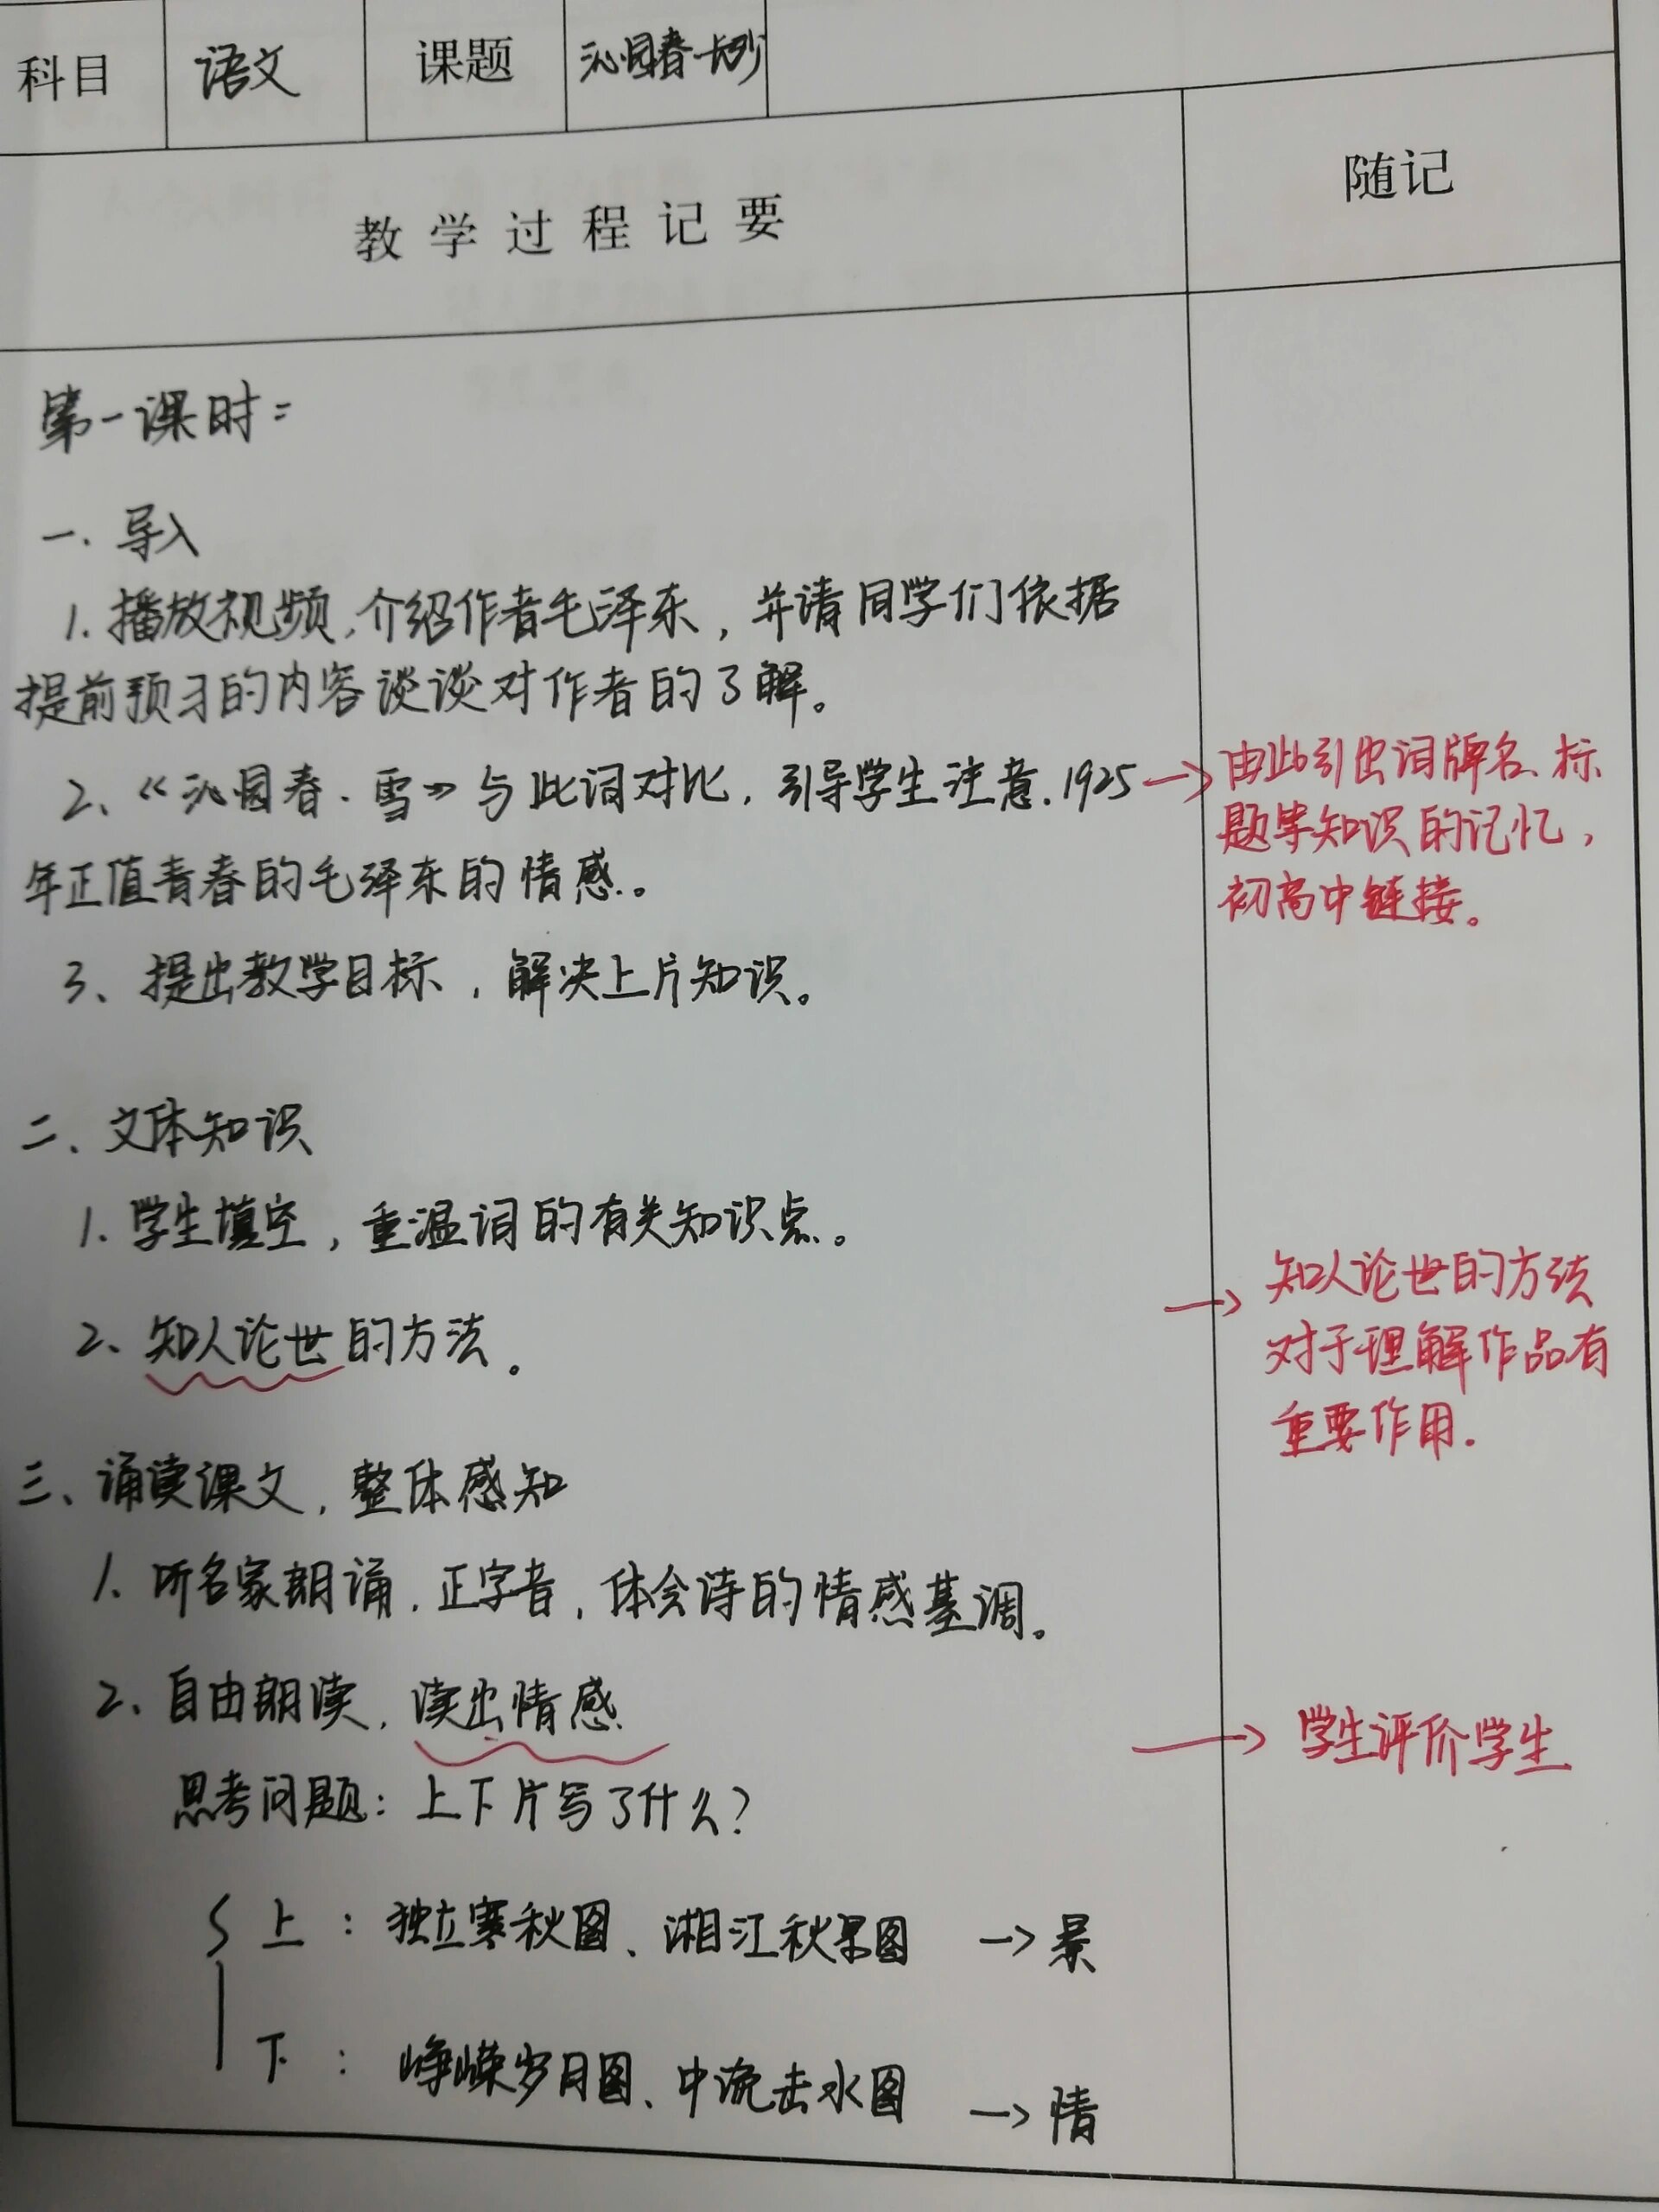 科目 语文 课题 沁园春·长沙
教学过程记要 随记
第一课时:
一、导入
1. 播放视频,介绍作者毛泽东,并请同学们依据
提前预习的内容谈谈对作者的了解。
2、《沁园春·雪》与此词对比,引导学生注意.1925
年正值青春的毛泽东的情感。
3、提出教学目标,解决上片知识。
→由此引出词牌名、标
题等知识的记忆,
初高中链接。
二、文体知识
1. 学生填空,重温词的有关知识点。
2、知人论世的方法。
→知人论世的方法
对于理解作品有
重要作用.
三、诵读课文,整体感知
1、听名家朗诵,正字音,体会诗的情感基调。
2、自由朗读,读出情感.
→学生评价学生
思考问题:上下片写了什么?
上:独立寒秋图、湘江秋景图 →景
下:峥嵘岁月图、中流击水图 →情